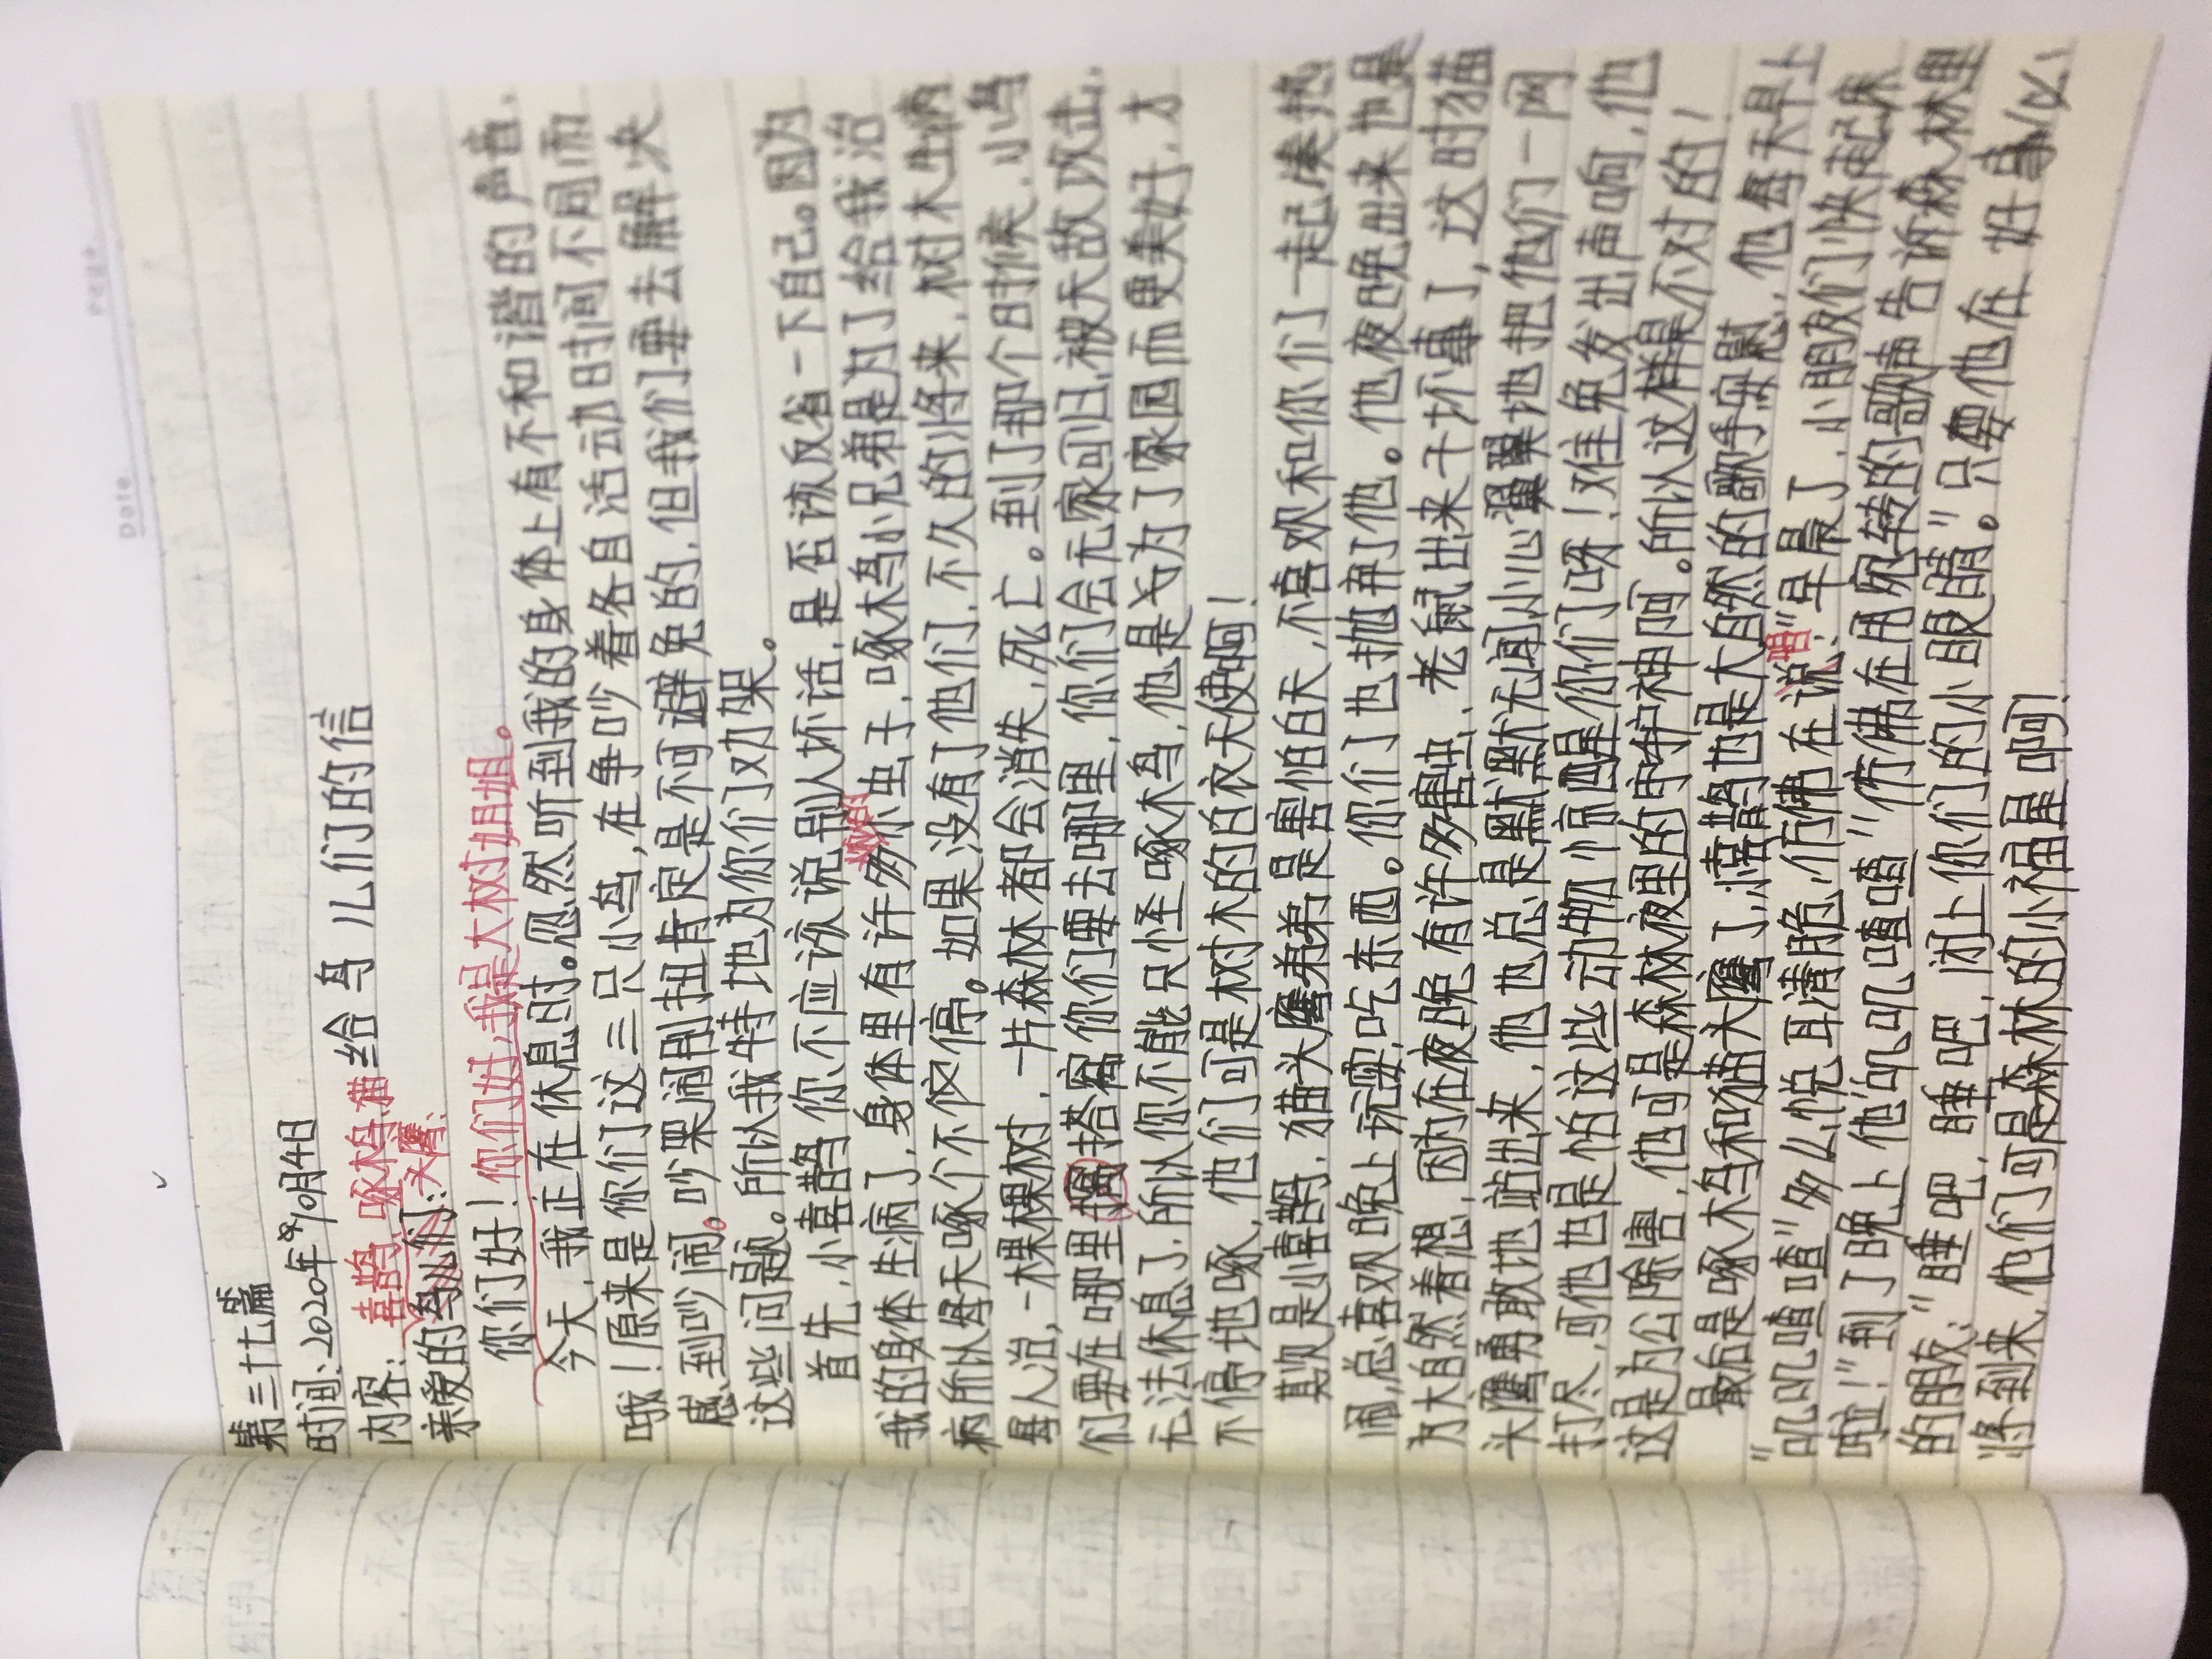 Date.
Page.
第三十七篇
时间:2020年10月4日
内容: 给鸟儿们的信
喜鹊、啄木鸟、猫
头鹰:
亲爱的鸟儿们:
你们好!你们好,我是大树姐姐。
今天,我正在休息时。忽然听到我的身体上有不和谐的声音,
哦!原来是你们这三只小鸟,在争吵着各自活动时间不同而
感到吵闹。吵架闹别扭肯定是不可避免的,但我们要去解决
这些问题。所以我特地为你们劝架。
首先,小喜鹊你不应该说别人坏话,是否该反省一下自己。因为
我的身体生病了,身体里有许多虫子,啄木鸟小兄弟是为了给我治
病所以每天啄个不停。如果没有了他们,不久的将来,树木生病
无人治,一棵棵树,一片森林都会消失,死亡。到了那个时候,小鸟
们要在哪里搭窝你们要去哪里,你们会无家可归,被天敌攻击,
无法休息了,所以你不能只怪啄木鸟,他是为了家园而更美好,才
不停地啄,他们可是树木的白衣天使啊!
其次是小喜鹊,猫头鹰弟弟是害怕白天,不喜欢和你们一起凑热
闹,总喜欢晚上玩耍,吃东西。你们也抛弃了他。他夜晚出来也是
为大自然着想,因为在夜晚有许多害虫、老鼠出来干坏事了,这时猫
头鹰勇敢地站出来,他也总是默默无闻小心翼翼地把他们一网
打尽,可他也是怕这些动物惊醒你们呀!难免发出声响,他
这是为公除害,他可是森林夜里的守护神呵。所以这样是不对的!
最后是啄木鸟和猫头鹰了,喜鹊也是大自然的歌手安慰,他每天早上
“叽叽喳喳”多么悦耳清脆,仿佛在说唱:“早晨了,小朋友们快起床
啦!”到了晚上他“叽叽喳喳”仿佛在用宛转的歌声告诉森林里
的朋友:“睡吧,睡吧,闭上你们的小眼睛。”只要他在,好事必
将到来,他们可是森林的小福星啊!